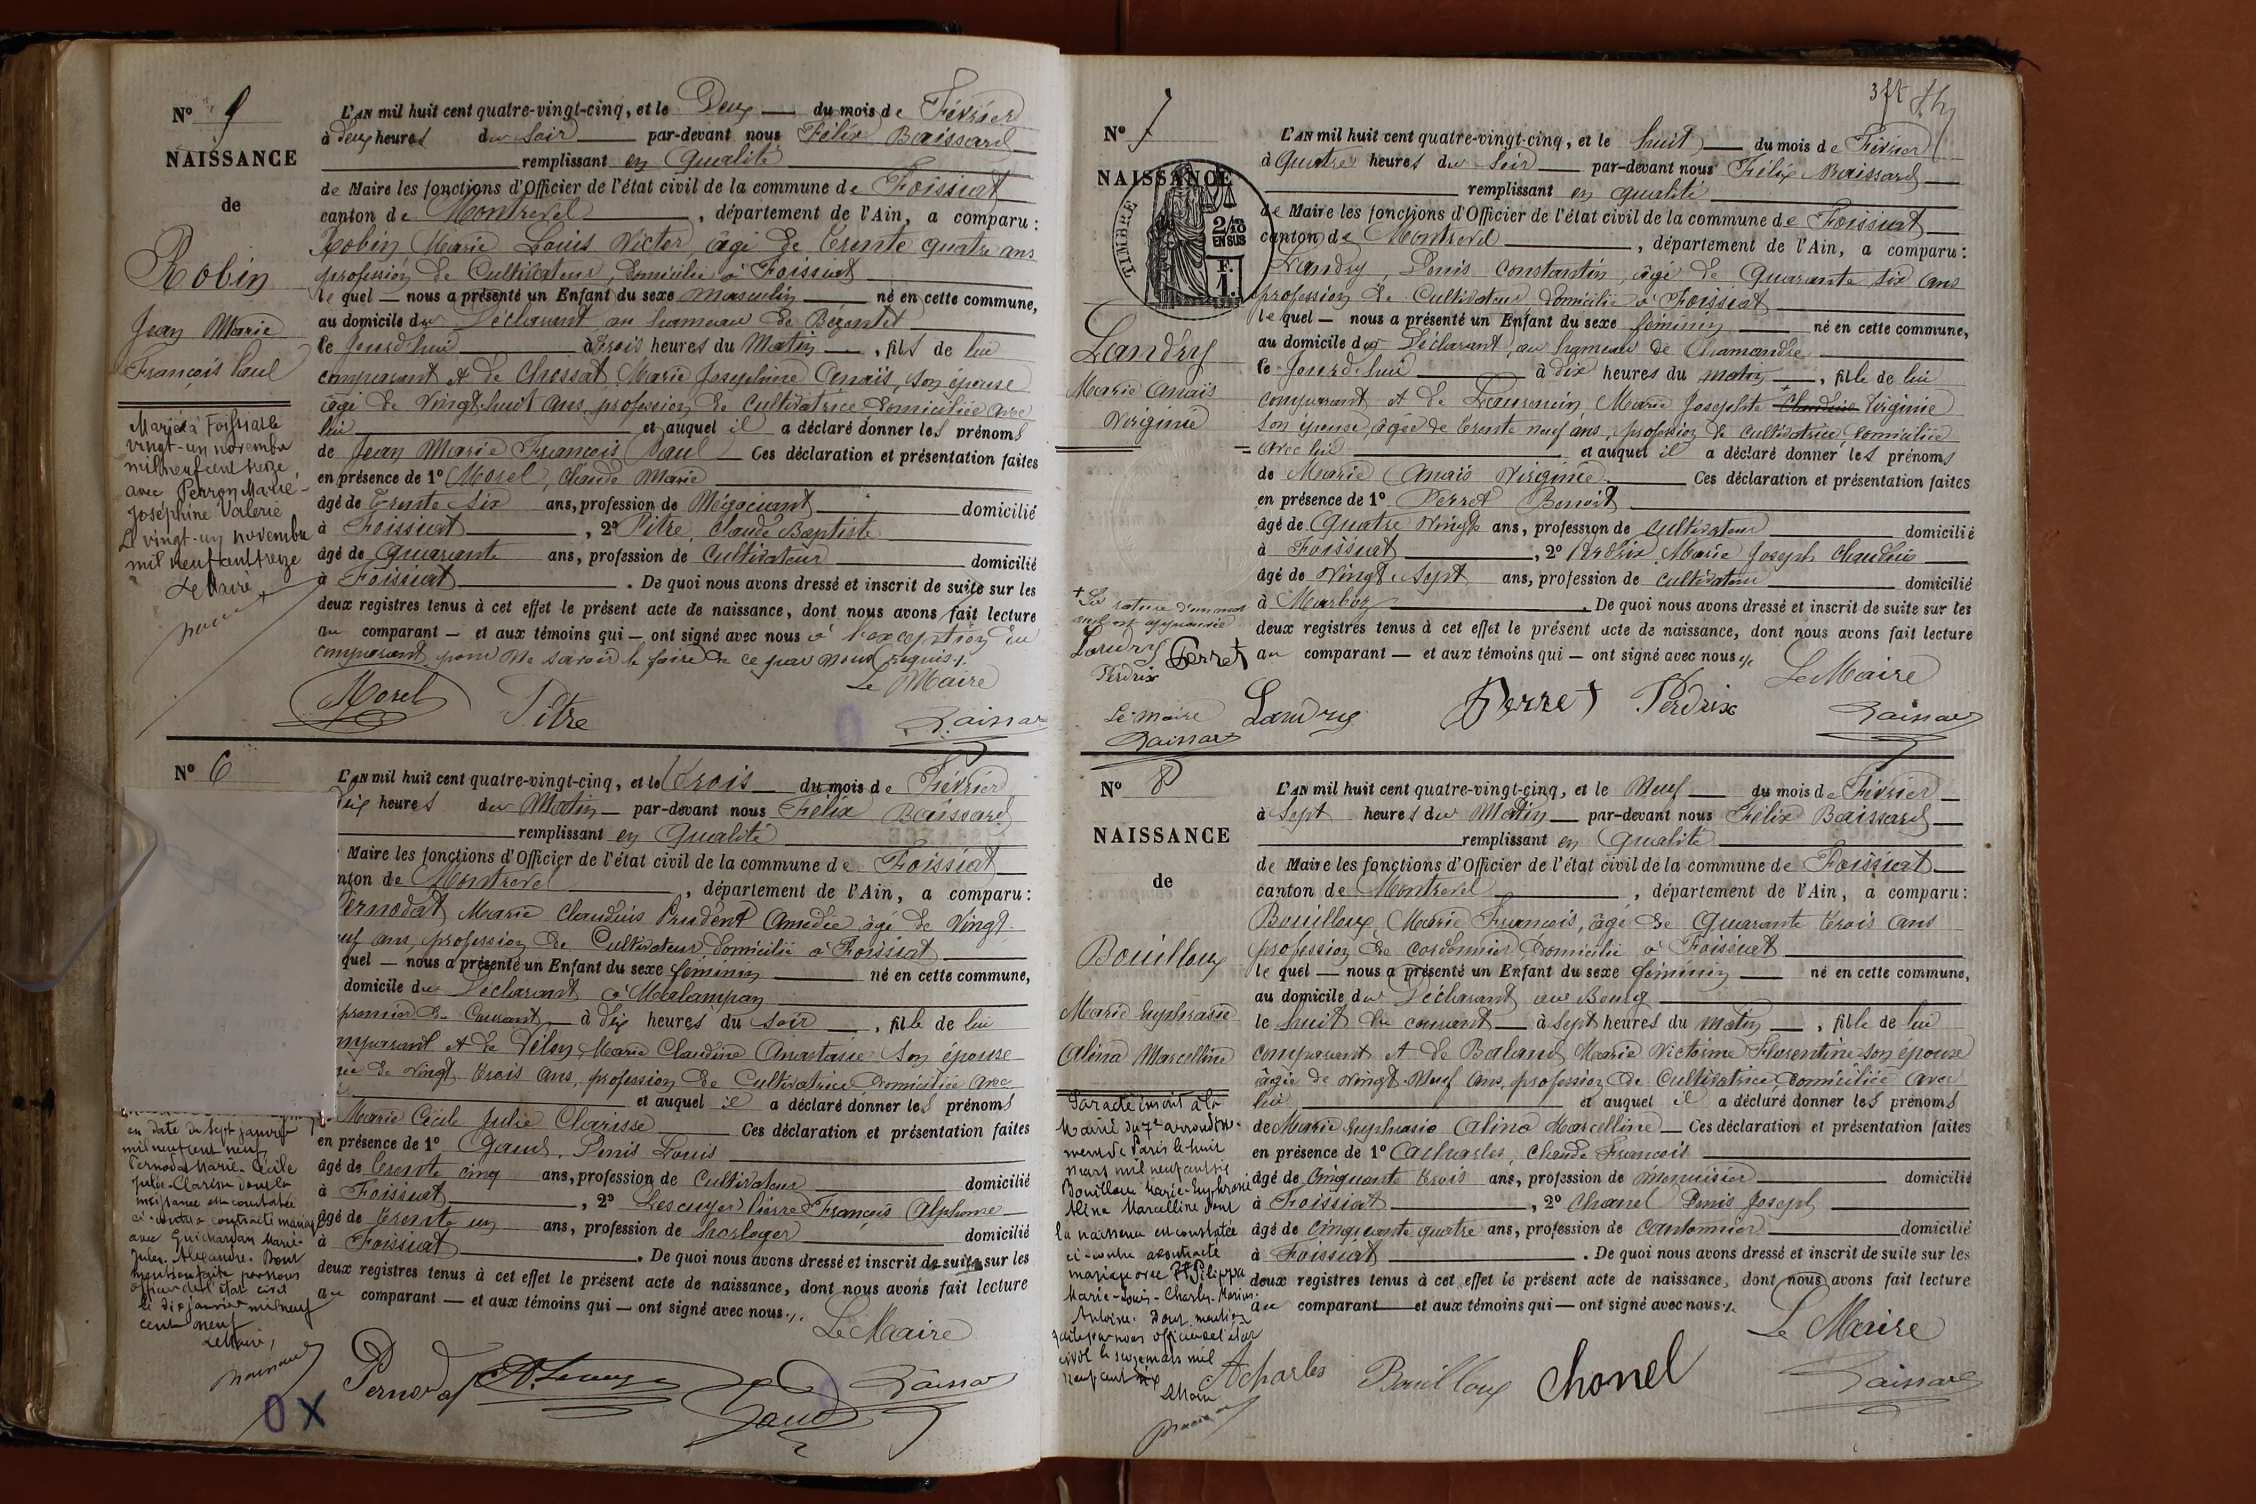 N° 5
NAISSANCE
de
Robin
Jean Marie
François Paul
Marié à Foissiat le
vingt-un novembre
mil neuf cent treize
avec Perron Marie-
Joséphine Valérie
Le vingt-un novembre
mil neuf cent treize
Le Maire
L'AN mil huit cent quatre-vingt-cinq, et le Deux du mois de Février
à deux heures du Soir par-devant nous Félix Baissard
remplissant en qualité
de Maire les fonctions d'Officier de l'état civil de la commune de Foissiat
canton de Montrevel, département de l'Ain, a comparu :
Robin Marie Louis Victor âgé de trente quatre ans
profession de Cultivateur, domicilié à Foissiat
le quel — nous a présenté un Enfant du sexe masculin né en cette commune,
au domicile du Déclarant au hameau de
le jourd'hui à trois heures du Matin, fils de lui
comparant et de Chossat, Marie Joséphine Anaïs, son épouse
âgée de vingt-huit ans, profession de cultivatrice domiciliée avec
lui et auquel il a déclaré donner les prénoms
de Jean Marie François Paul Ces déclaration et présentation faites
en présence de 1° Morel, Claude Marie
âgé de trente six ans, profession de Négociant domicilié
à Foissiat, 2° Pitre, Claude Baptiste
âgé de quarante ans, profession de Cultivateur domicilié
à Foissiat. De quoi nous avons dressé et inscrit de suite sur les
deux registres tenus à cet effet le présent acte de naissance, dont nous avons fait lecture
au comparant — et aux témoins qui — ont signé avec nous à l'exception du
comparant pour ne savoir le faire de ce par nous requis.
Le Maire
Morel Pitre
N° 6
L'AN mil huit cent quatre-vingt-cinq, et le trois du mois de Février
dix heures du Matin par-devant nous Félix Baissard
remplissant en qualité
Maire les fonctions d'Officier de l'état civil de la commune de Foissiat
nton de Montrevel, département de l'Ain, a comparu :
Pernodat Marie Claudius Prudent Amédée âgé de vingt-
euf ans, profession de Cultivateur domicilié à Foissiat
quel — nous a présenté un Enfant du sexe féminin né en cette commune,
domicile du Déclarant à Malampan
premier du Courant à dix heures du soir, fille de lui
mparant et de Vélon, Marie Claudine Anastasie son épouse
gée de vingt trois ans, profession de Cultivatrice domiciliée avec
et auquel il a déclaré donner les prénoms
Marie Cécile Julie Clarisse Ces déclaration et présentation faites
en présence de 1° Gaud, Denis Louis
âgé de trente cinq ans, profession de Cultivateur domicilié
à Foissiat, 2° Lescuyer Pierre François Alphonse
âgé de trente un ans, profession de horloger domicilié
à Foissiat. De quoi nous avons dressé et inscrit de suite sur les
deux registres tenus à cet effet le présent acte de naissance, dont nous avons fait lecture
au comparant — et aux témoins qui — ont signé avec nous.
Le Maire
en date du sept janvier
mil neuf cent neuf
Pernodat Marie-Cécile
Julie-Clarisse dont la
naissance est constatée
ci-contre a contracté mariage
avec Guichardan Marie-
Jules-Alexandre. Dont
mention faite par nous
officier de l'état civil
le dix janvier mil neuf
cent neuf
Le Maire,
Pernodat Gaud
0 X
3
N° 7
NAISSANCE
TIMBRE
2/10
EN SUS
F.
1.
Landry
Marie Anaïs
Virginie
+ La rature d'un mot
nul est approuvée
Landry Perret
Perdrix
Le Maire
L'AN mil huit cent quatre-vingt-cinq, et le huit du mois de Février
à Quatre heures du Soir par-devant nous Félix Baissard
remplissant en qualité
de Maire les fonctions d'Officier de l'état civil de la commune de Foissiat
canton de Montrevel, département de l'Ain, a comparu :
Landry, Denis Constantin, âgé de quarante six ans
profession de Cultivateur, domicilié à Foissiat
le quel — nous a présenté un Enfant du sexe féminin né en cette commune,
au domicile du Déclarant, au hameau de Chamandre
le jourd'hui à dix heures du matin, fille de lui
comparant et de Laurencin, Marie Josephte + Claudine Virginie
son épouse, âgée de trente neuf ans, profession de cultivatrice, domiciliée
avec lui et auquel il a déclaré donner les prénoms
de Marie Anaïs Virginie Ces déclaration et présentation faites
en présence de 1° Perret Benoit
âgé de Quatre Vingts ans, profession de cultivateur domicilié
à Foissiat, 2° Perdrix Marie Joseph Claudius
âgé de Vingt-Sept ans, profession de cultivateur domicilié
à Marboz. De quoi nous avons dressé et inscrit de suite sur les
deux registres tenus à cet effet le présent acte de naissance, dont nous avons fait lecture
au comparant — et aux témoins qui — ont signé avec nous.
Le Maire
Landry Perret Perdrix
N° 8
NAISSANCE
de
Bouilloux
Marie Euphrasie
Alina Marcelline
Par acte inscrit à la
Mairie du 7e arrondisse-
ment de Paris le huit
mars mil neuf cent
Bouilloux Marie-Euphrasie
Alina Marcelline dont
la naissance est constatée
ci-contre a contracté
mariage avec Philippe
Marie-Louis-Charles-Marius-
Antoine. Dont mention
faite par nous officier de l'état
civil le seize mars mil
neuf cent
Le Maire
L'AN mil huit cent quatre-vingt-cinq, et le Neuf du mois de Février
à Sept heures du Matin par-devant nous Félix Baissard
remplissant en qualité
de Maire les fonctions d'Officier de l'état civil de la commune de Foissiat
canton de Montrevel, département de l'Ain, a comparu :
Bouilloux, Marie François, âgé de Quarante trois ans
profession de cordonnier, domicilié à Foissiat
le quel — nous a présenté un Enfant du sexe féminin né en cette commune,
au domicile du Déclarant, au Bourg
le huit du courant à sept heures du matin, fille de lui
comparant et de Baland, Marie Victorine Florentine son épouse
âgée de vingt-neuf ans, profession de cultivatrice, domiciliée avec
lui et auquel il a déclaré donner les prénoms
de Marie Euphrasie Alina Marcelline Ces déclaration et présentation faites
en présence de 1° Acharles, Claude François
âgé de Cinquante trois ans, profession de menuisier domicilié
à Foissiat, 2° Chanel Denis Joseph
âgé de cinquante quatre ans, profession de cantonnier domicilié
à Foissiat. De quoi nous avons dressé et inscrit de suite sur les
deux registres tenus à cet effet le présent acte de naissance, dont nous avons fait lecture
au comparant — et aux témoins qui — ont signé avec nous.
Le Maire
Acharles Bouilloux Chanel